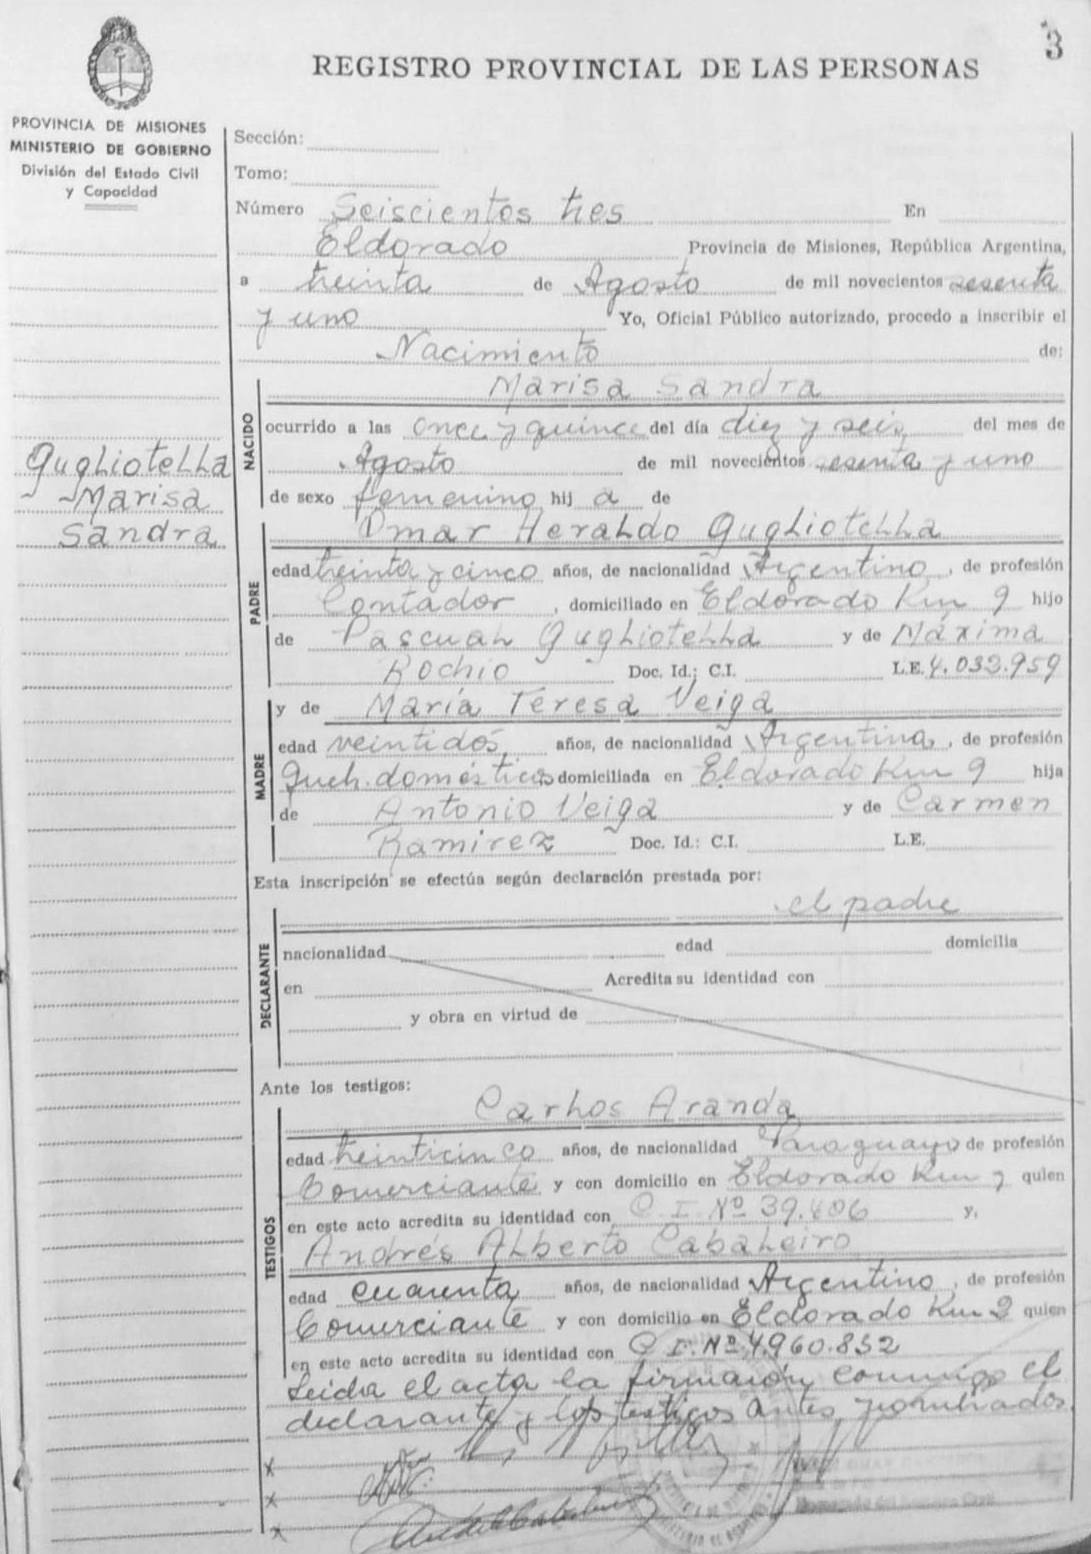 3
REGISTRO PROVINCIAL DE LAS PERSONAS
PROVINCIA DE MISIONES
MINISTERIO DE GOBIERNO
División del Estado Civil
y Capacidad
Gugliotella
Marisa
Sandra
Sección:
Tomo:
Número Seiscientos tres En
Eldorado Provincia de Misiones, República Argentina,
a treinta de Agosto de mil novecientos sesenta
y uno Yo, Oficial Público autorizado, procedo a inscribir el
Nacimiento de:
NACIDO
Marisa Sandra
ocurrido a las once y quince del día diez y seis del mes de
Agosto de mil novecientos sesenta y uno
de sexo femenino hij a de
PADRE
Omar Heraldo Gugliotella
edad treinta y cinco años, de nacionalidad Argentino, de profesión
Contador, domiciliado en Eldorado Km 9 hijo
de Pascual Gugliotella y de Máxima
Rochio Doc. Id.; C.I. L.E. 4.033.959
MADRE
y de María Teresa Veiga
edad veintidós, años, de nacionalidad Argentina, de profesión
Queh. domésticos domiciliada en Eldorado Km 9 hija
de Antonio Veiga y de Carmen
Ramirez Doc. Id.: C.I. L.E.
Esta inscripción se efectúa según declaración prestada por:
el padre
DECLARANTE
nacionalidad edad domicilia
en Acredita su identidad con
y obra en virtud de
Ante los testigos:
TESTIGOS
Carlos Aranda
edad treinticinco años, de nacionalidad Paraguayo de profesión
Comerciante y con domicilio en Eldorado Km quien
en este acto acredita su identidad con C.I. Nº 39.406 y,
Andrés Alberto Cabaleiro
edad cuarenta años, de nacionalidad Argentino, de profesión
Comerciante y con domicilio en Eldorado Km 2 quien
en este acto acredita su identidad con C.I. Nº 4.960.852
Leida el acta la firmaron conmigo el
declarante y los testigos antes nombrados.